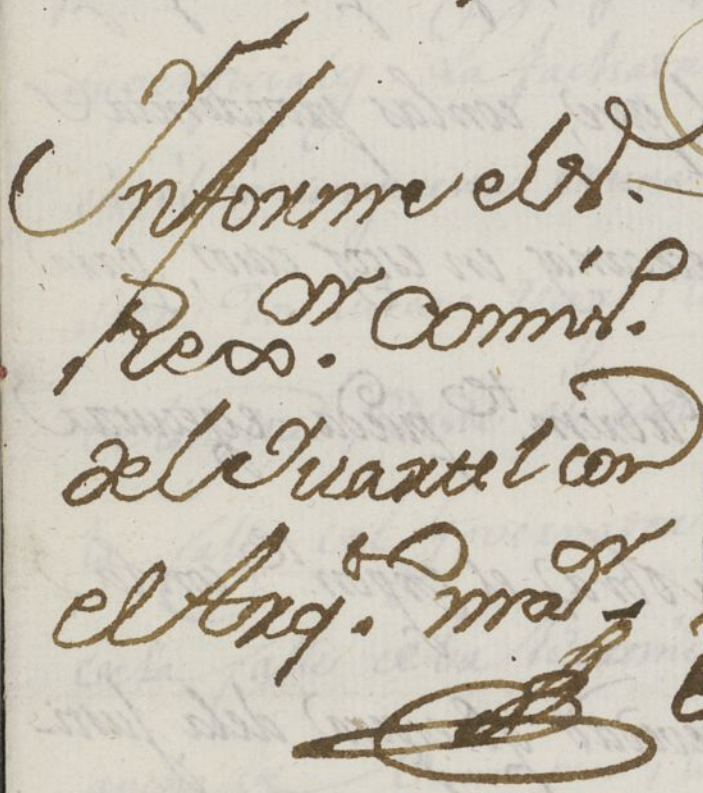 Informe el S.
Rex.or Comis.
del Quartel con
el Arq.to mr.or